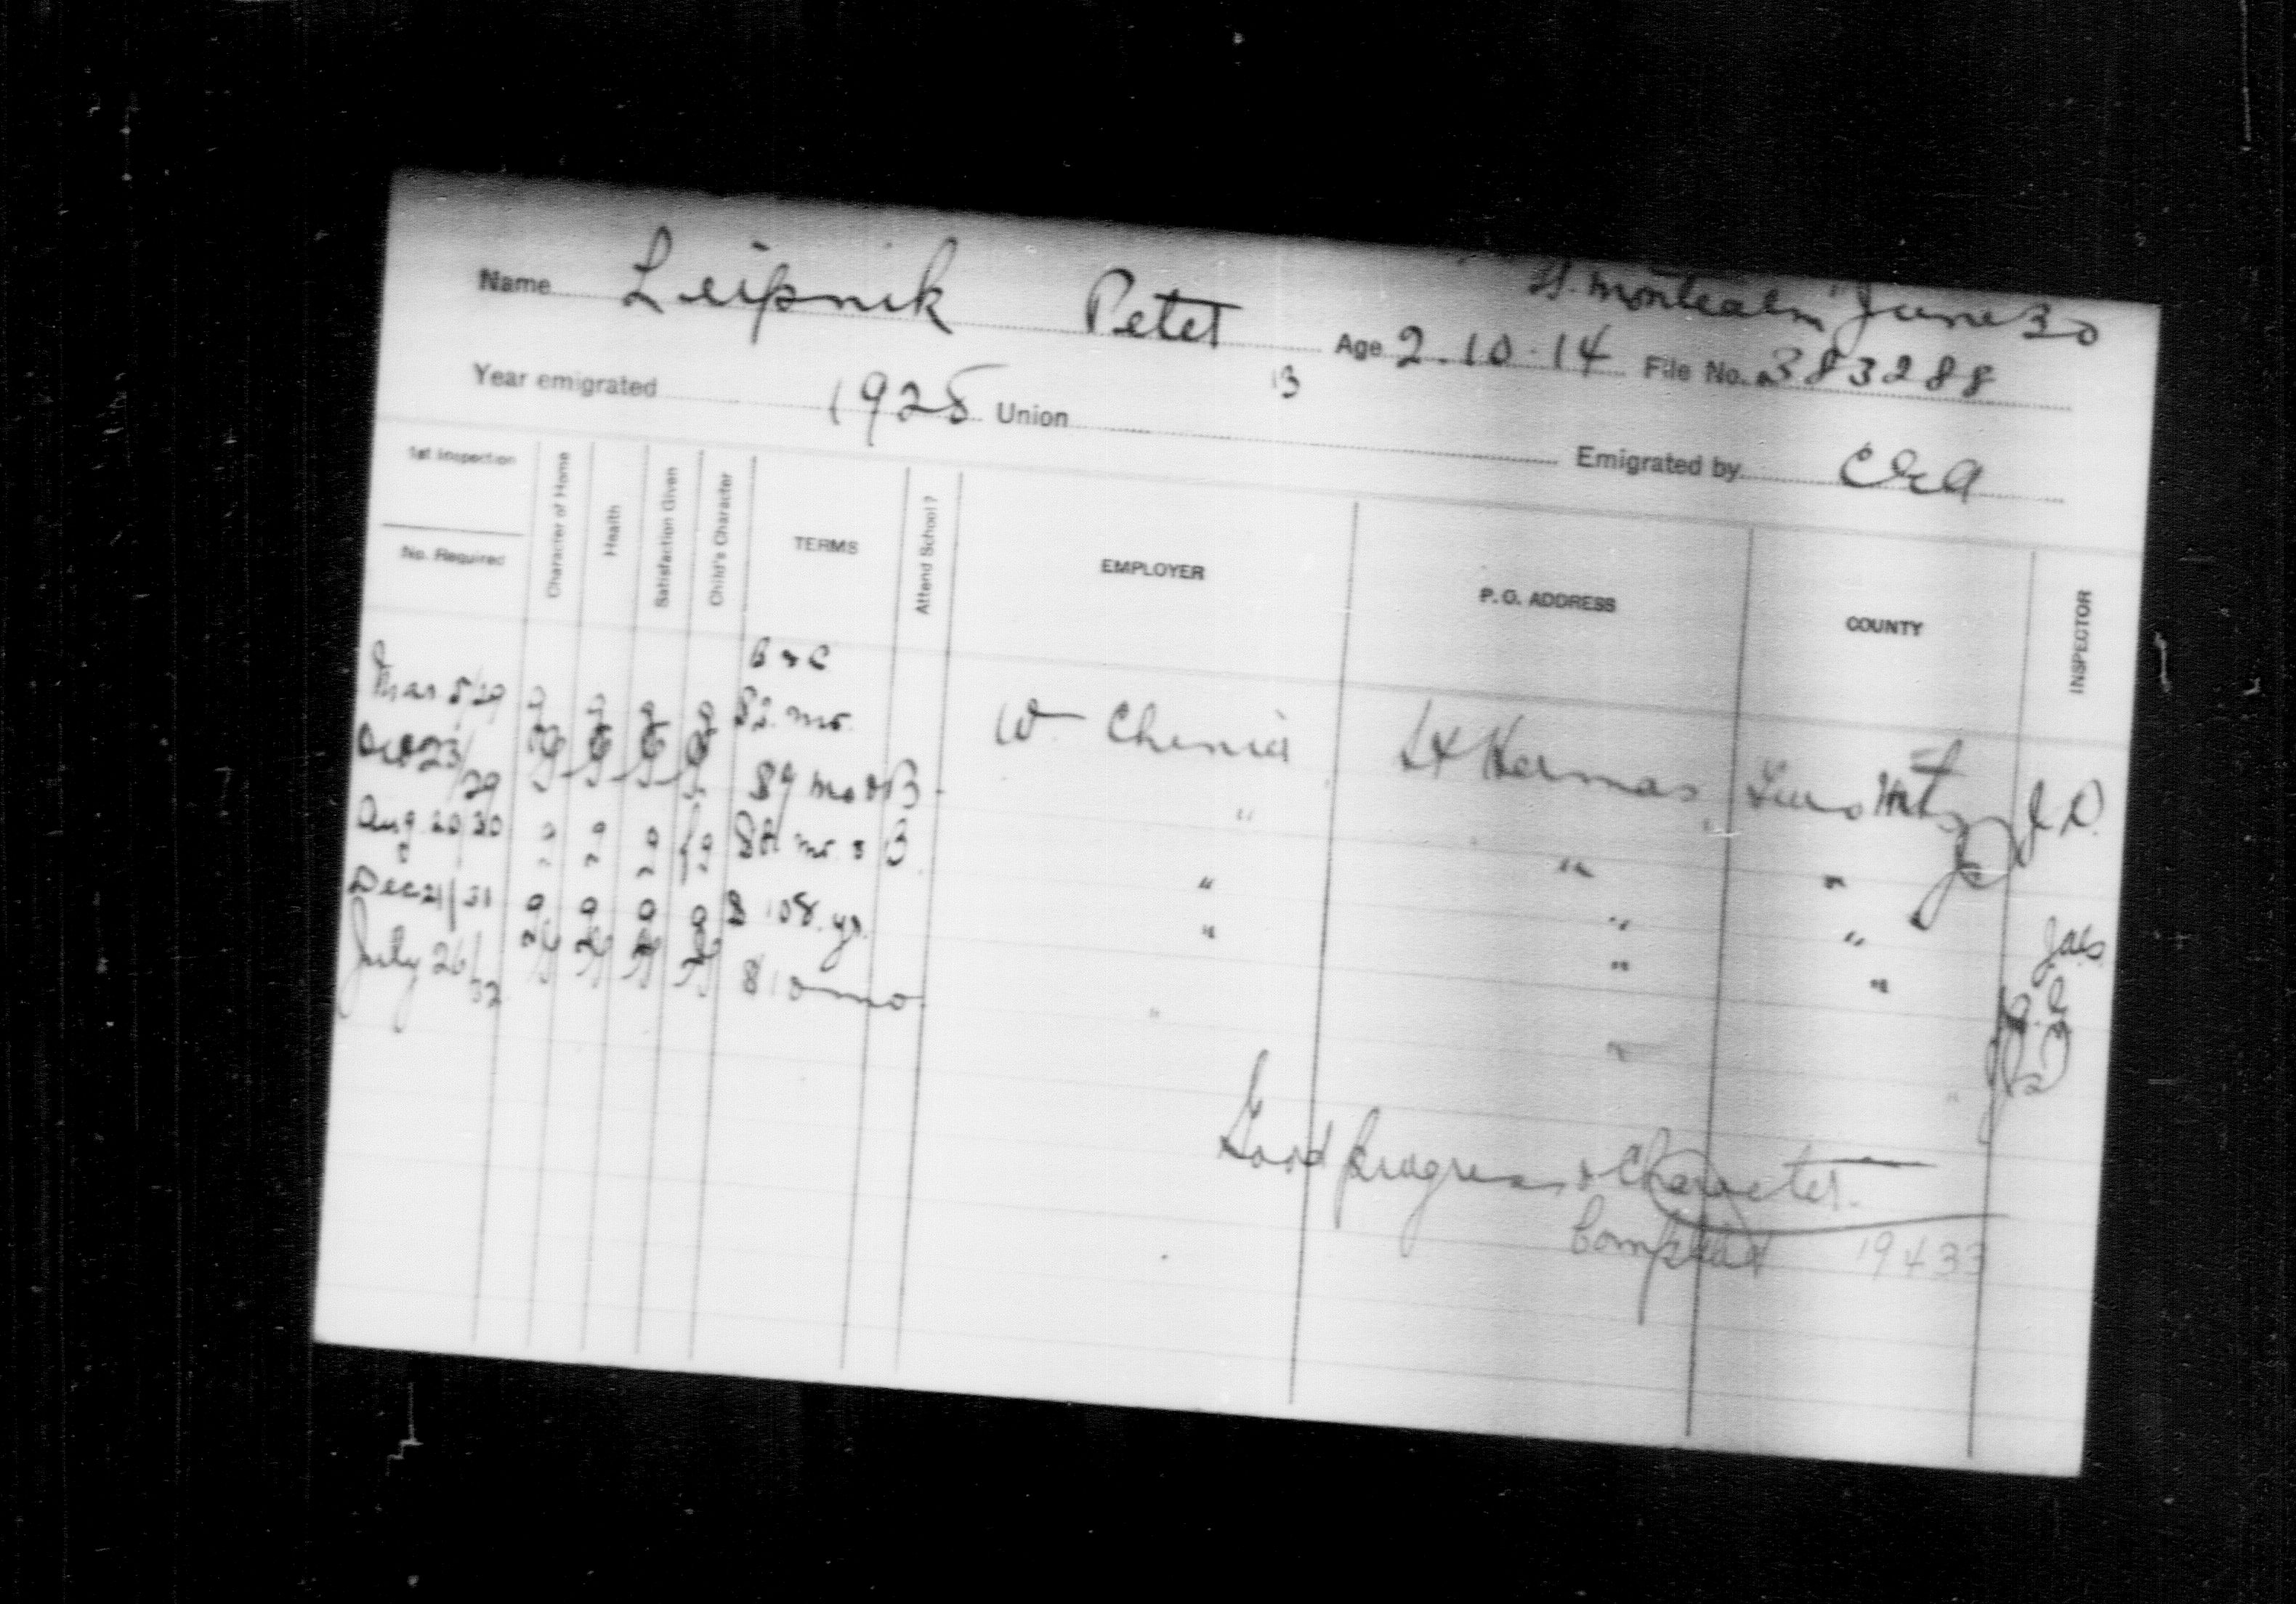 "Montcalm" June 30
Name Leipnik Peter Age 2.10.14 File No. 383288
13
Year emigrated 1928 Union Emigrated by
1st Inspection
No. Required
Character of Home
Health
Satisfaction Given
Child's Character
TERMS
Attend School?
EMPLOYER
P. O. ADDRESS
COUNTY
INSPECTOR
B & C
Mar 5/29 g g g g $2. mo. W St Hermas Two Mts J.D.
Dec 23/29 G G G G $9 mo & B " " "
Aug 20/30 g g g g mo & B " " "
Dec 21/31 g g g g $108. yr. " " "
July 26/32 G G G G $10 mo " "
Good progress & Character.
Completed